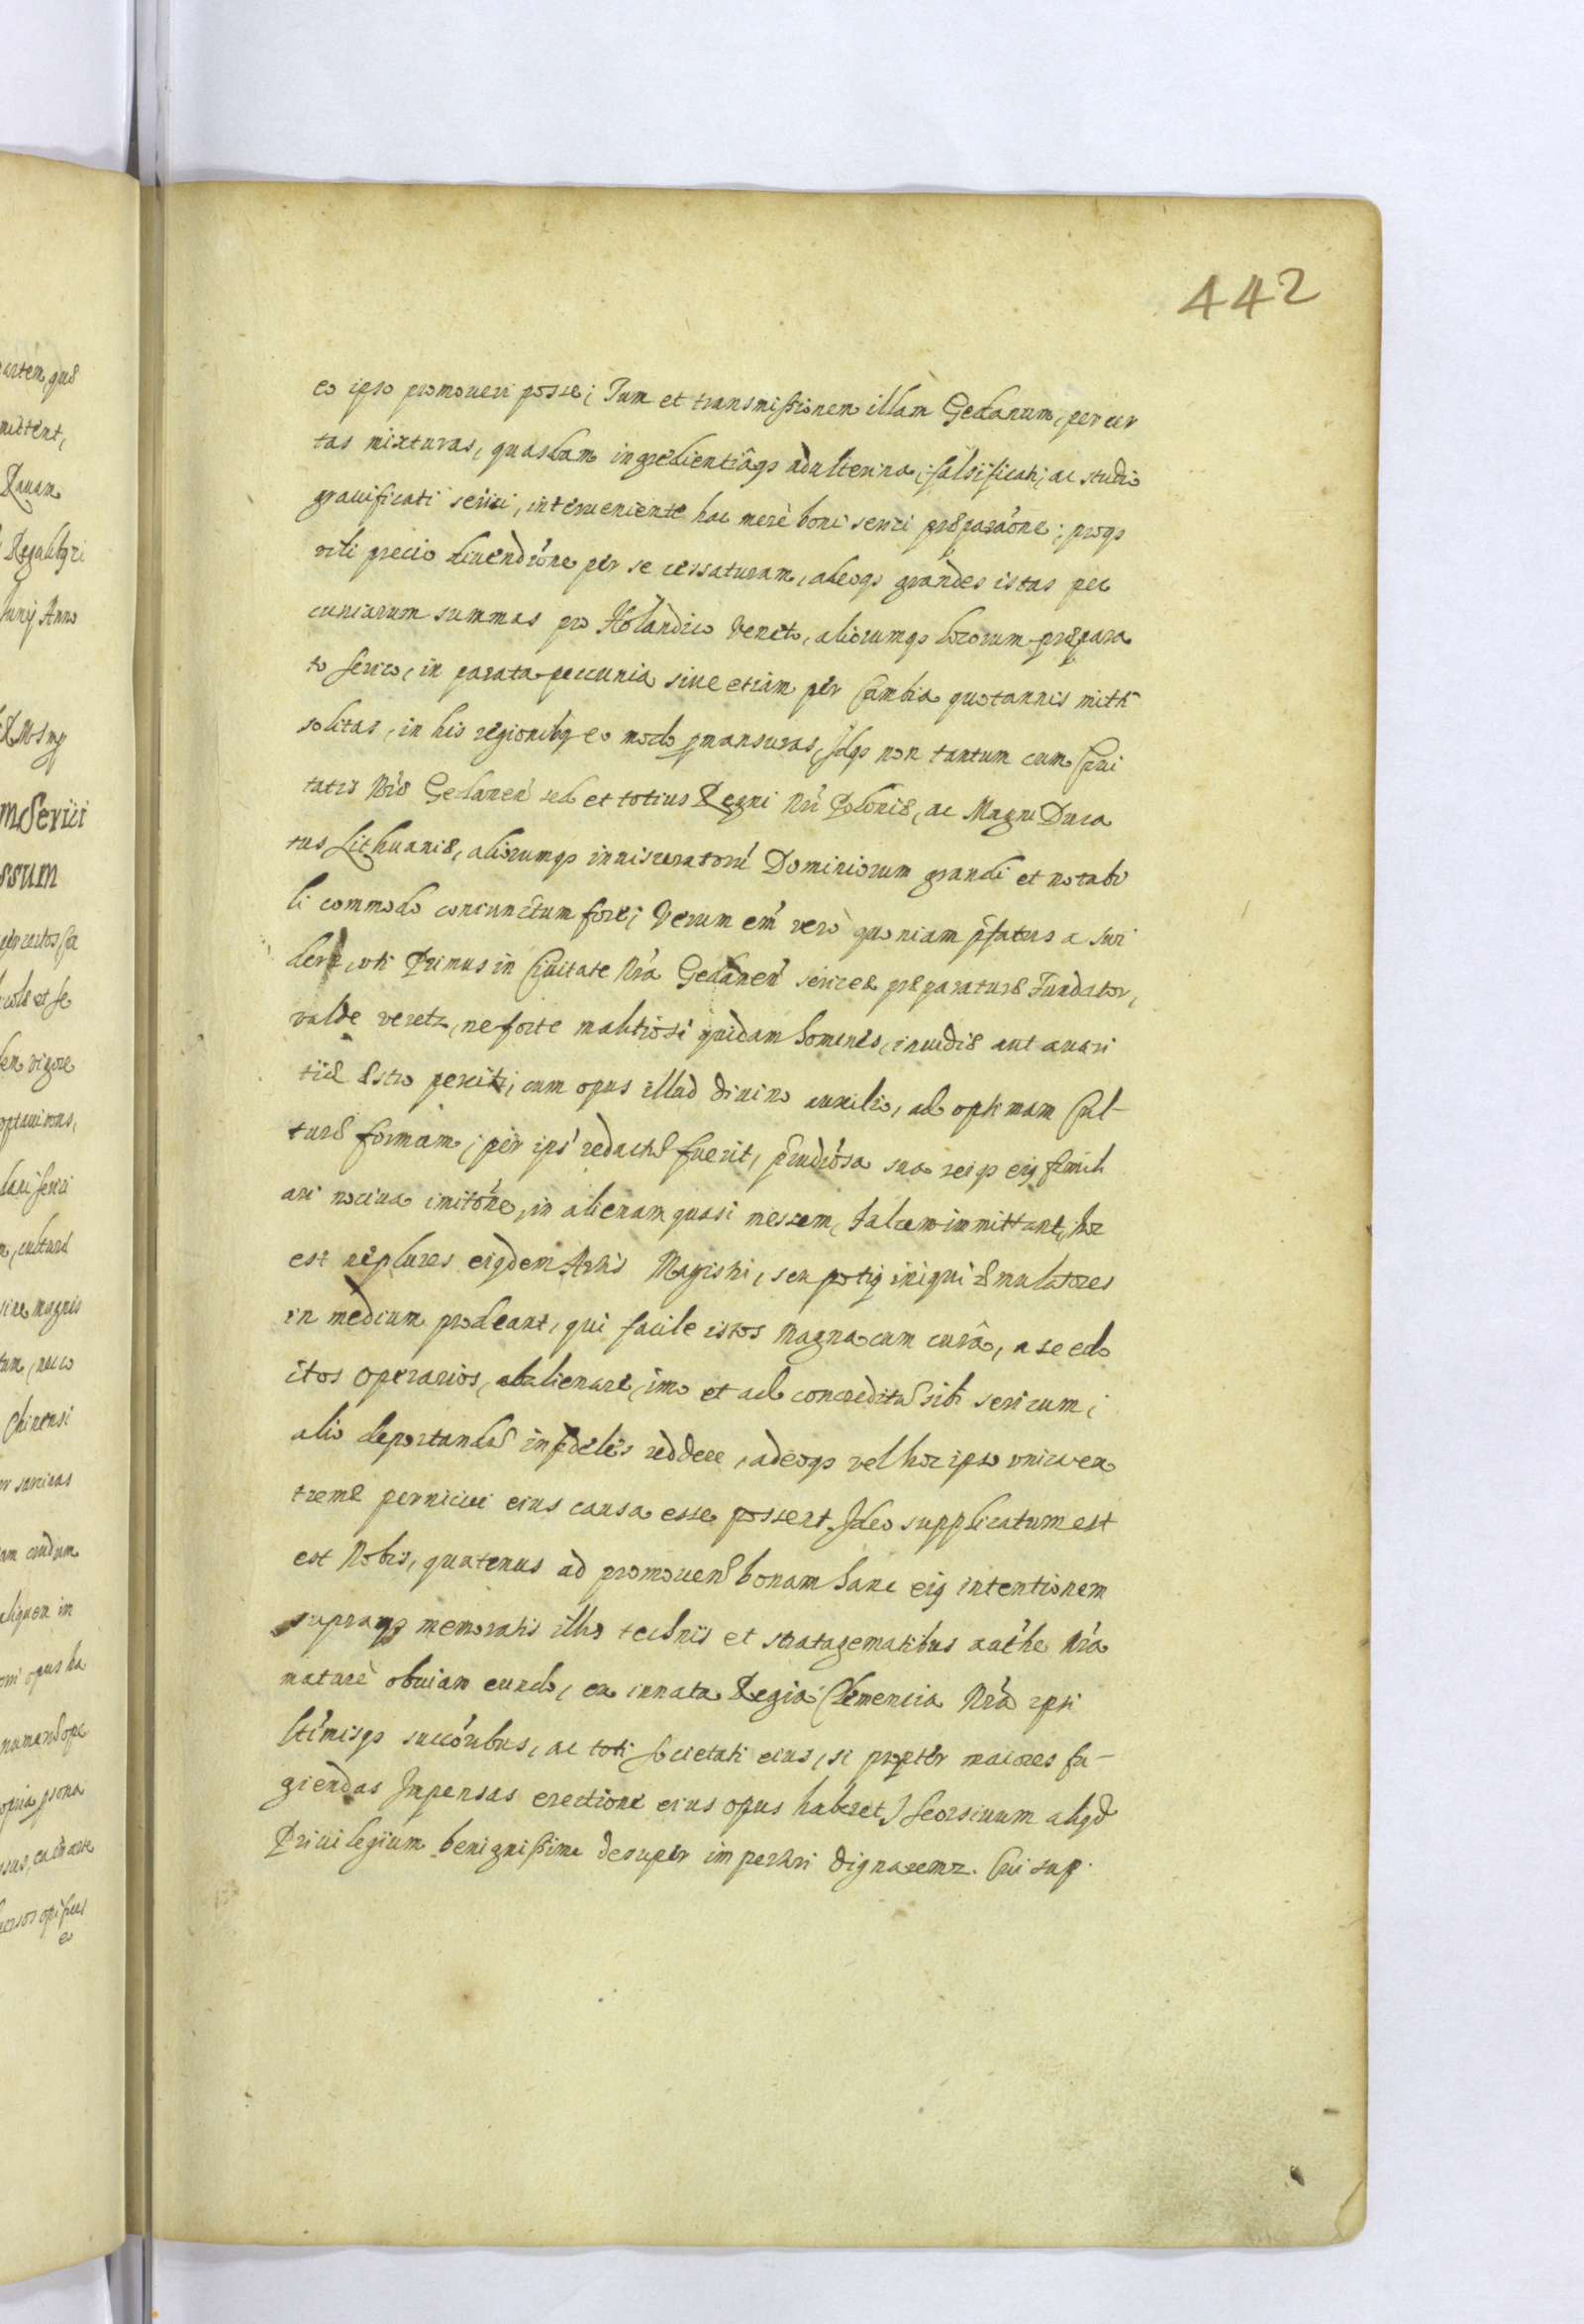 442
eo ipso promoveri posse; Tum et transmissionem illam Gedanum, per cer
tas mixturas, quasdam ingredientiâqs adulterina, falsificati, ac studio
gravificati serici, interveniente hac merè boni serici præparaône; proqs
vili precio divendiône per se cessaturam, adeoqs grandes istas pec
cuniarum summas pro Holandico Veneto, aliorumqs locorum præpara
to serico, in parata peccunia sive etiam per Cambia quotannis mitti
solitas, in his regionibq eo modo pmansuras, Idqs non tantum cum Civi
tatis Nræ Gedanen sed et totius Regni Nri Poloniæ, ac Magni Duca
tus Lithuaniæ, aliorumqs Dominiorum grandi et notabi
li commodo coniunctum fore; Verum em verò quoniam pfatus a Sur
den, uti Primus in Civitate Nra Gedanen sericeæ præparaturæ Fundator,
valde veretr, ne forte malitiosi quidam homines, invidiæ aut avari
tiæ æstro perciti, cum opus illud divino auxilio, ad optimam Cul-
turæ formam, per ips redactũ fuerit, pniciosa sua reiqs eiq famili
ari nociva imitône, in alienam quasi messem, falcem immittant, hoc
est ne plures eiqdem Artis Magistri, seu potiq iniqui æmulatores
in medium prodeant, qui facile istos magna cum curâ, a se edo
ctos operarios, abalienare, imo et ad concreditũ sibi sericum,
alio deportandũ infideles reddere, adeoqs vel hoc ipso unico ex
tremæ perniciei eius causa esse possent. Ideo supplicatum est
est Nobis, quatenus ad promovend bonam hanc eiq intentionem
supraqs memoratis illis technis et stratagematibus Nra
maturè obviam eundo, ex innata Regia Clementia Nra ipsi
ltimisqs succõribus, ac toti societati eius, si propter maiores fu-
giendas Impensas erectione eius opus haberet) seorsivum aliqd
Privilegium benignissime desuper impertiri dignaremr. Cui sup